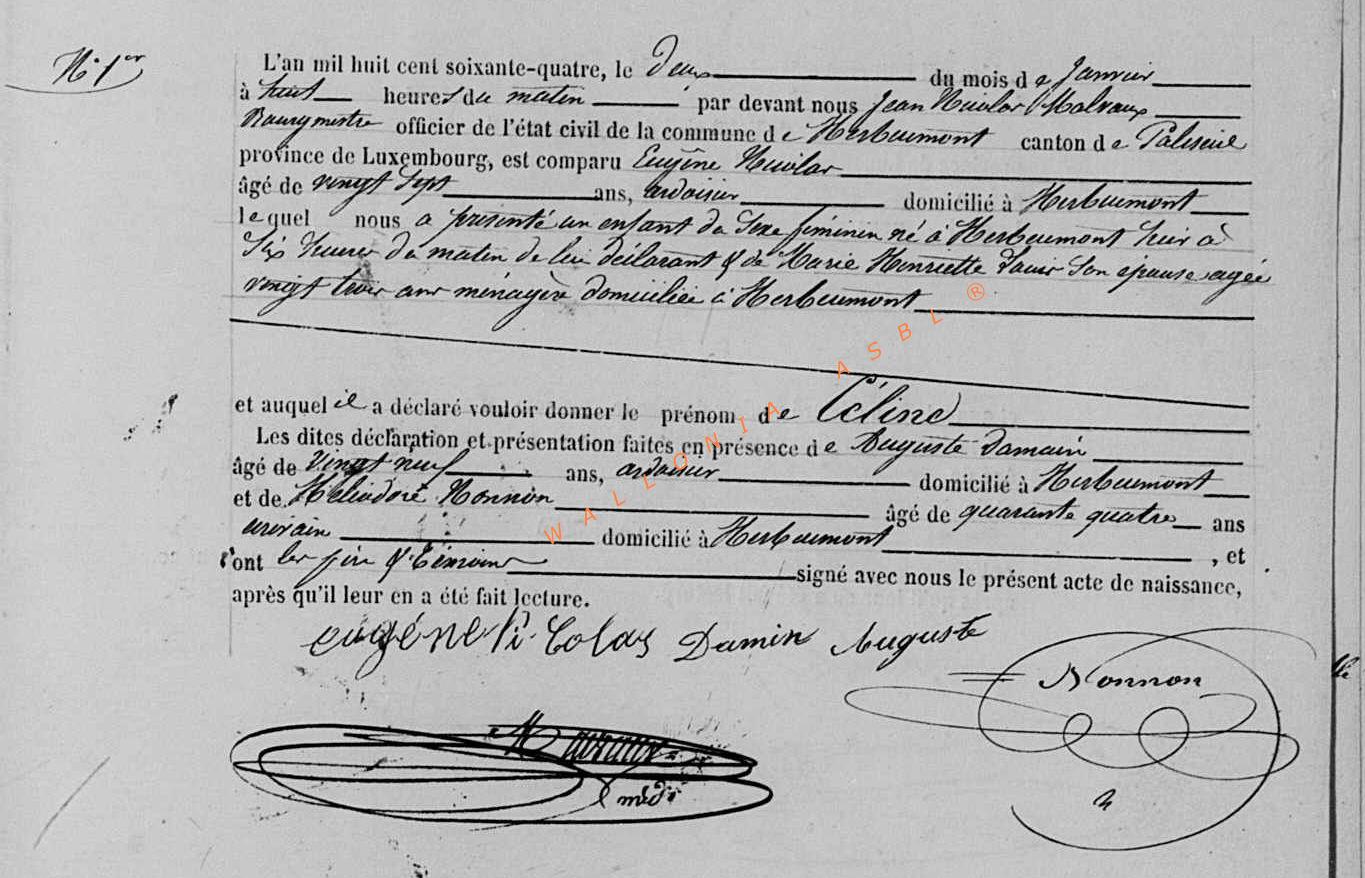 N° 1er
L'an mil huit cent soixante-quatre, le Deux du mois de Janvier
à huit heures du matin par devant nous Jean Nicolas Malvaux
Bourgmestre officier de l'état civil de la commune de Herbeumont canton de Paliseul
province de Luxembourg, est comparu Eugène Nicolas
âgé de vingt Sept ans, ardoisier domicilié à Herbeumont
lequel nous a présenté un enfant du Sexe féminin né à Herbeumont hier à
Six heures du matin de lui déclarant & de Marie Henriette son épouse agée
vingt trois ans ménagère domiciliée à Herbeumont
et auquel il a déclaré vouloir donner le prénom de Céline
Les dites déclaration et présentation faites en présence de Auguste Damain
âgé de Vingt neuf ans, ardoisier domicilié à Herbeumont
et de Héliodore Nonnon âgé de quarante quatre ans
domicilié à Herbeumont , et
ont les père & témoins signé avec nous le présent acte de naissance,
après qu'il leur en a été fait lecture.
eugéne Ni Colas Damin Auguste
Nonnon
Malvaux
WALLONIA ASBL ®